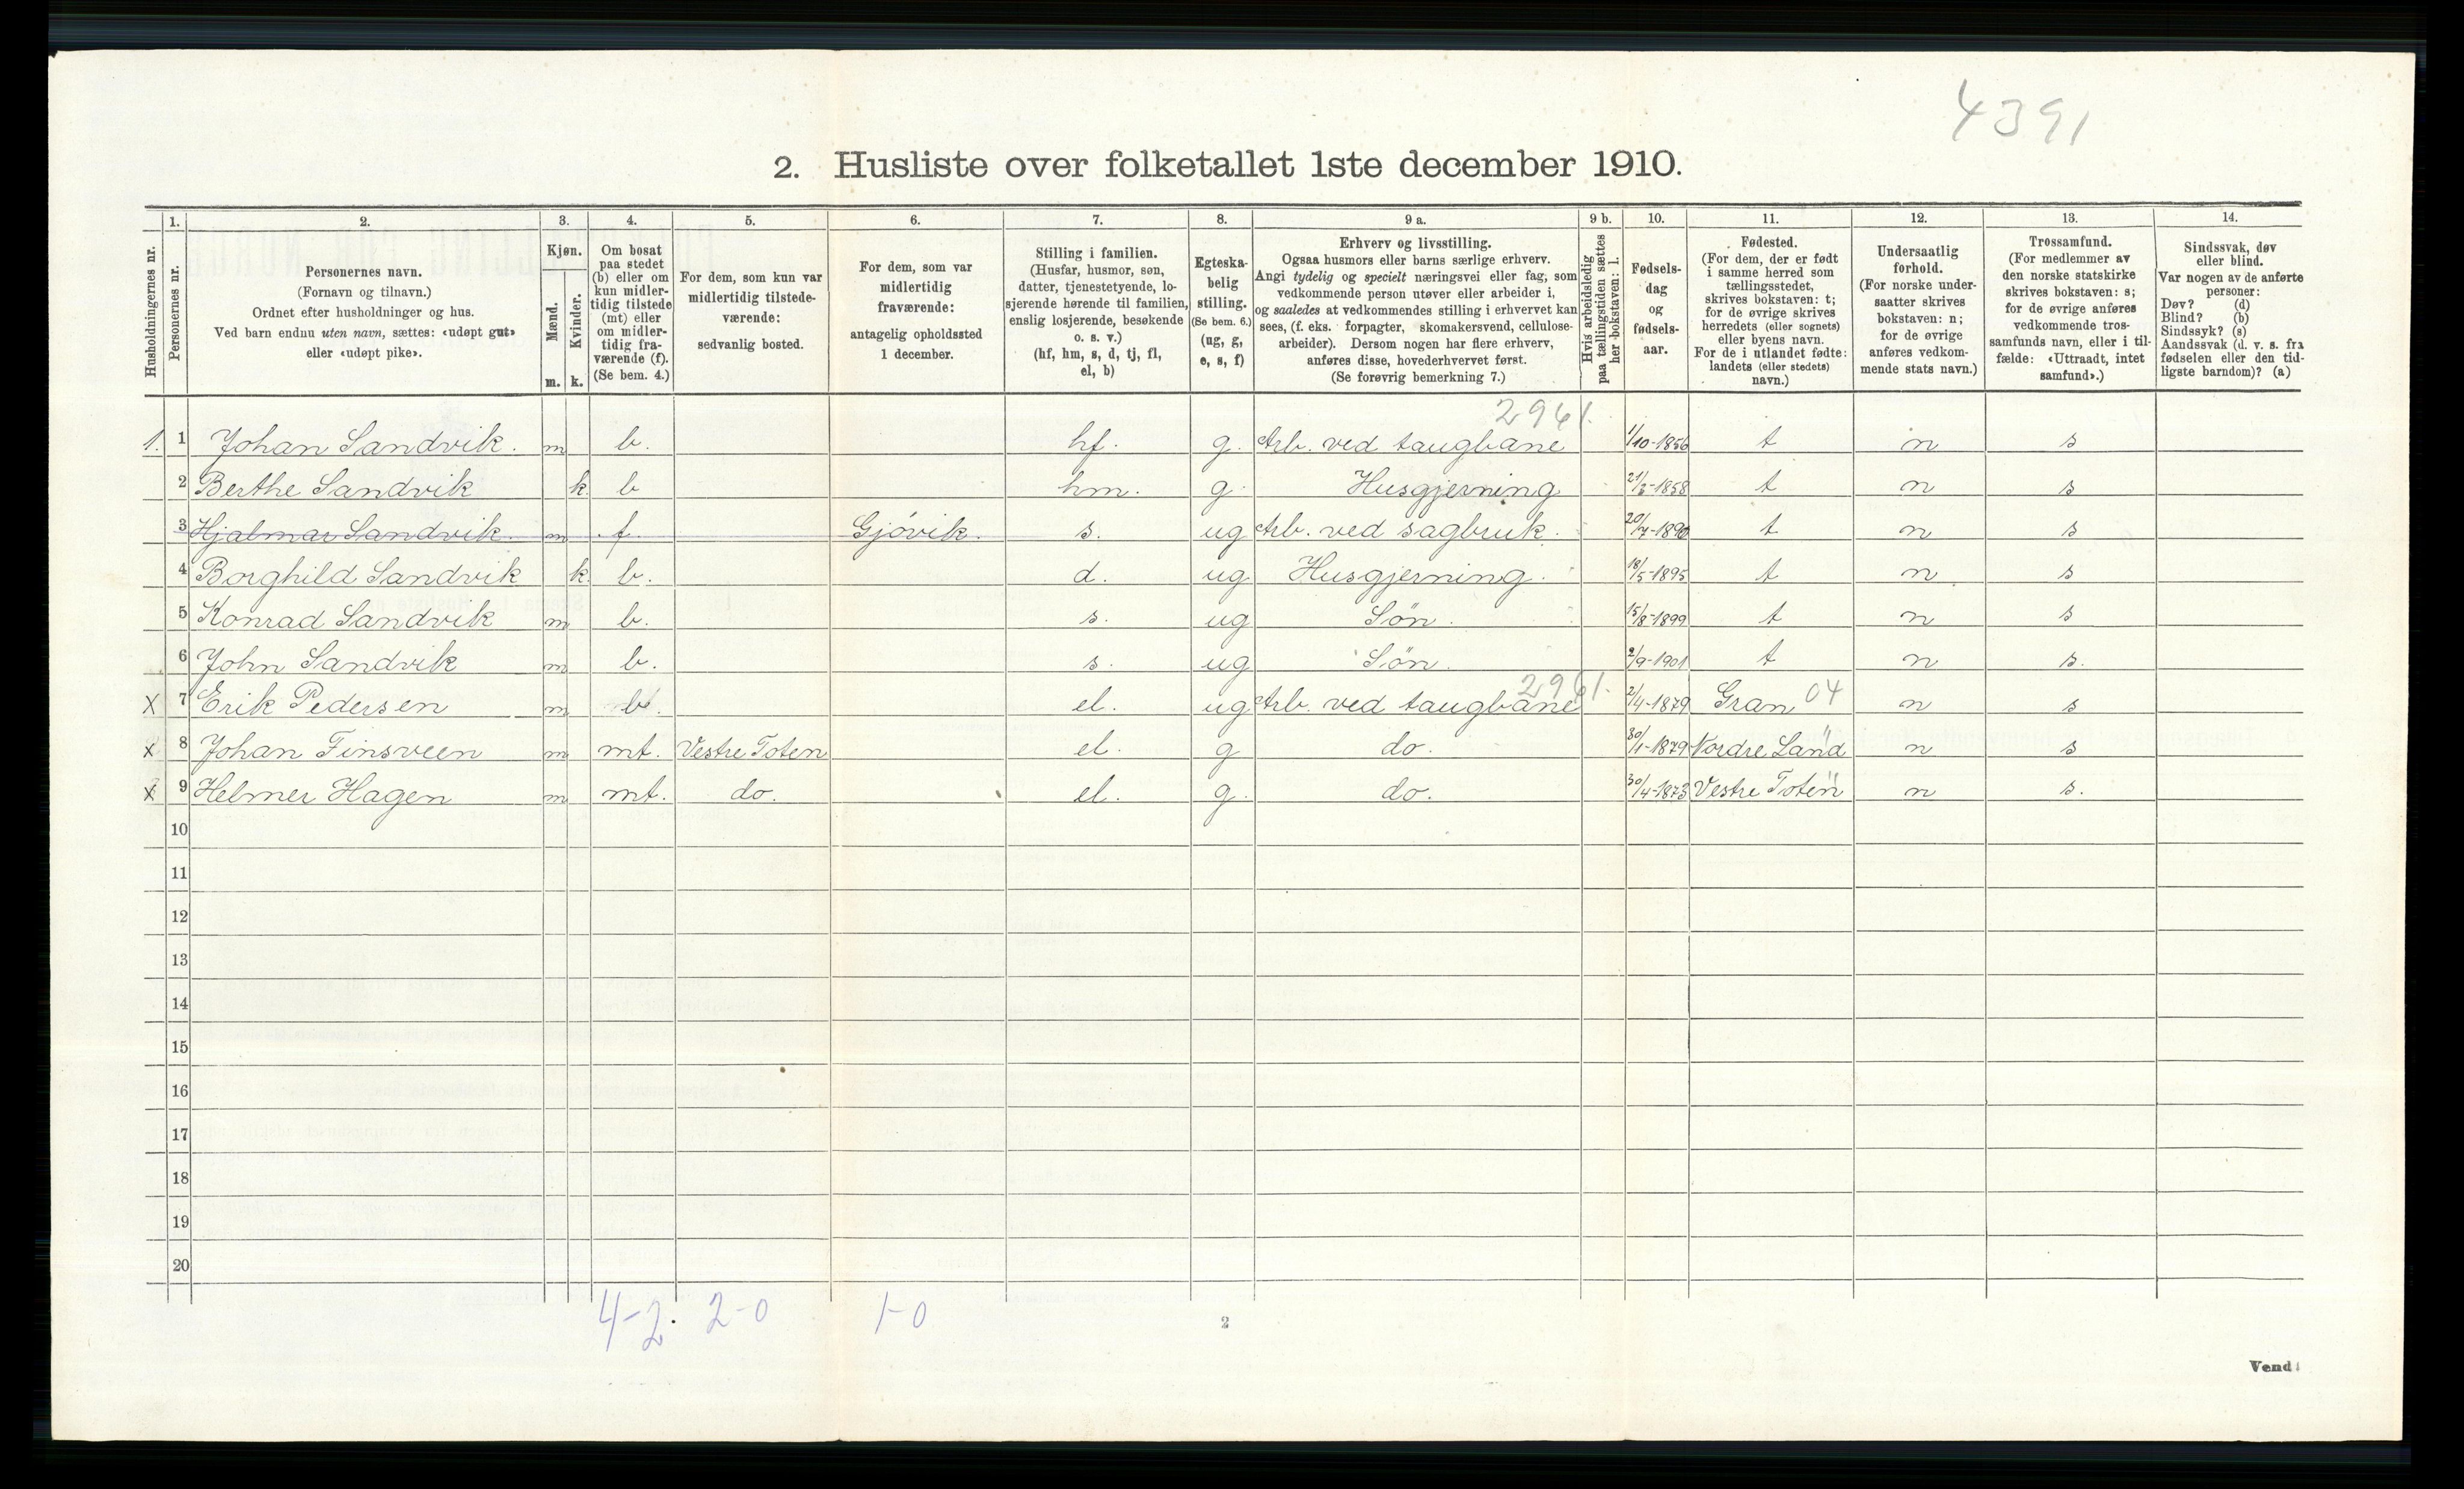 4391
2. Husliste over folketallet 1ste december 1910.
1. 2. 3. 4. 5. 6. 7. 8. 9 a. 9 b. 10. 11. 12. 13. 14.
Husholdningernes nr.
Personernes nr.
Personernes navn.
(Fornavn og tilnavn.)
Ordnet efter husholdninger og hus.
Ved barn endnu uten navn, sættes: «udøpt gut»
eller «udøpt pike».
Kjøn.
Mænd.
Kvinder.
m. k.
Om bosat
paa stedet
(b) eller om
kun midler-
tidig tilstede
(mt) eller
om midler-
tidig fra-
værende (f).
(Se bem. 4.)
For dem, som kun var
midlertidig tilstede-
værende:
sedvanlig bosted.
For dem, som var
midlertidig
fraværende:
antagelig opholdssted
1 december.
Stilling i familien.
(Husfar, husmor, søn,
datter, tjenestetyende, lo-
sjerende hørende til familien,
enslig losjerende, besøkende
o. s. v.)
(hf, hm, s, d, tj, fl,
el, b)
Egteska-
belig
stilling.
(Se bem. 6.)
(ug, g,
e, s, f)
Erhverv og livsstilling.
Ogsaa husmors eller barns særlige erhverv.
Angi tydelig og specielt næringsvei eller fag, som
vedkommende person utøver eller arbeider i,
og saaledes at vedkommendes stilling i erhvervet kan
sees, (f. eks. forpagter, skomakersvend, cellulose-
arbeider). Dersom nogen har flere erhverv,
anføres disse, hovederhvervet først.
(Se forøvrig bemerkning 7.)
Hvis arbeidsledig
paa tællingstiden sættes
her bokstaven: l.
Fødsels-
dag
og
fødsels-
aar.
Fødested.
(For dem, der er født
i samme herred som
tællingsstedet,
skrives bokstaven: t;
for de øvrige skrives
herredets (eller sognets)
eller byens navn.
For de i utlandet fødte:
landets (eller stedets)
navn.)
Undersaatlig
forhold.
(For norske under-
saatter skrives
bokstaven: n;
for de øvrige
anføres vedkom-
mende stats navn.)
Trossamfund.
(For medlemmer av
den norske statskirke
skrives bokstaven: s;
for de øvrige anføres
vedkommende tros-
samfunds navn, eller i til-
fælde: «Uttraadt, intet
samfund».)
Sindssvak, døv
eller blind.
Var nogen av de anførte
personer:
Døv? (d)
Blind? (b)
Sindssyk? (s)
Aandssvak (d. v. s. fra
fødselen eller den tid-
ligste barndom)? (a)
2961.
1. 1 Johan Sandvik. m b. hf. g. Arb. ved taugbane 1/10-1856 t n s
2 Berthe Sandvik k b hm. g. Husgjerning 21/3-1858 t n s
3 Hjalmar Sandvik. m f. Gjövik. s. ug Arb. ved sagbruk. 20/7-1890 t n s
4 Borghild Sandvik k b. d. ug Husgjerning. 18/5-1895 t n s
5 Konrad Sandvik m b. s. ug Sön. 15/8-1899 t n s
6 John Sandvik m b. s. ug Sön. 2/9-1901 t n s.
2961.
x 7 Erik Pedersen m b. el. ug Arb. ved taugbane 2/4-1879 Gran 04 n s
x 8 Johan Finsveen m mt. Vestre Toten el. g do. 30/1-1879 Nordre Land n s
x 9 Helmer Hagen m mt. do. el. g. do. 30/4-1873 Vestre Toten n s.
10
11
12
13
14
15
16
17
18
19
20
4-2. 2-0 1-0
2
Vend!